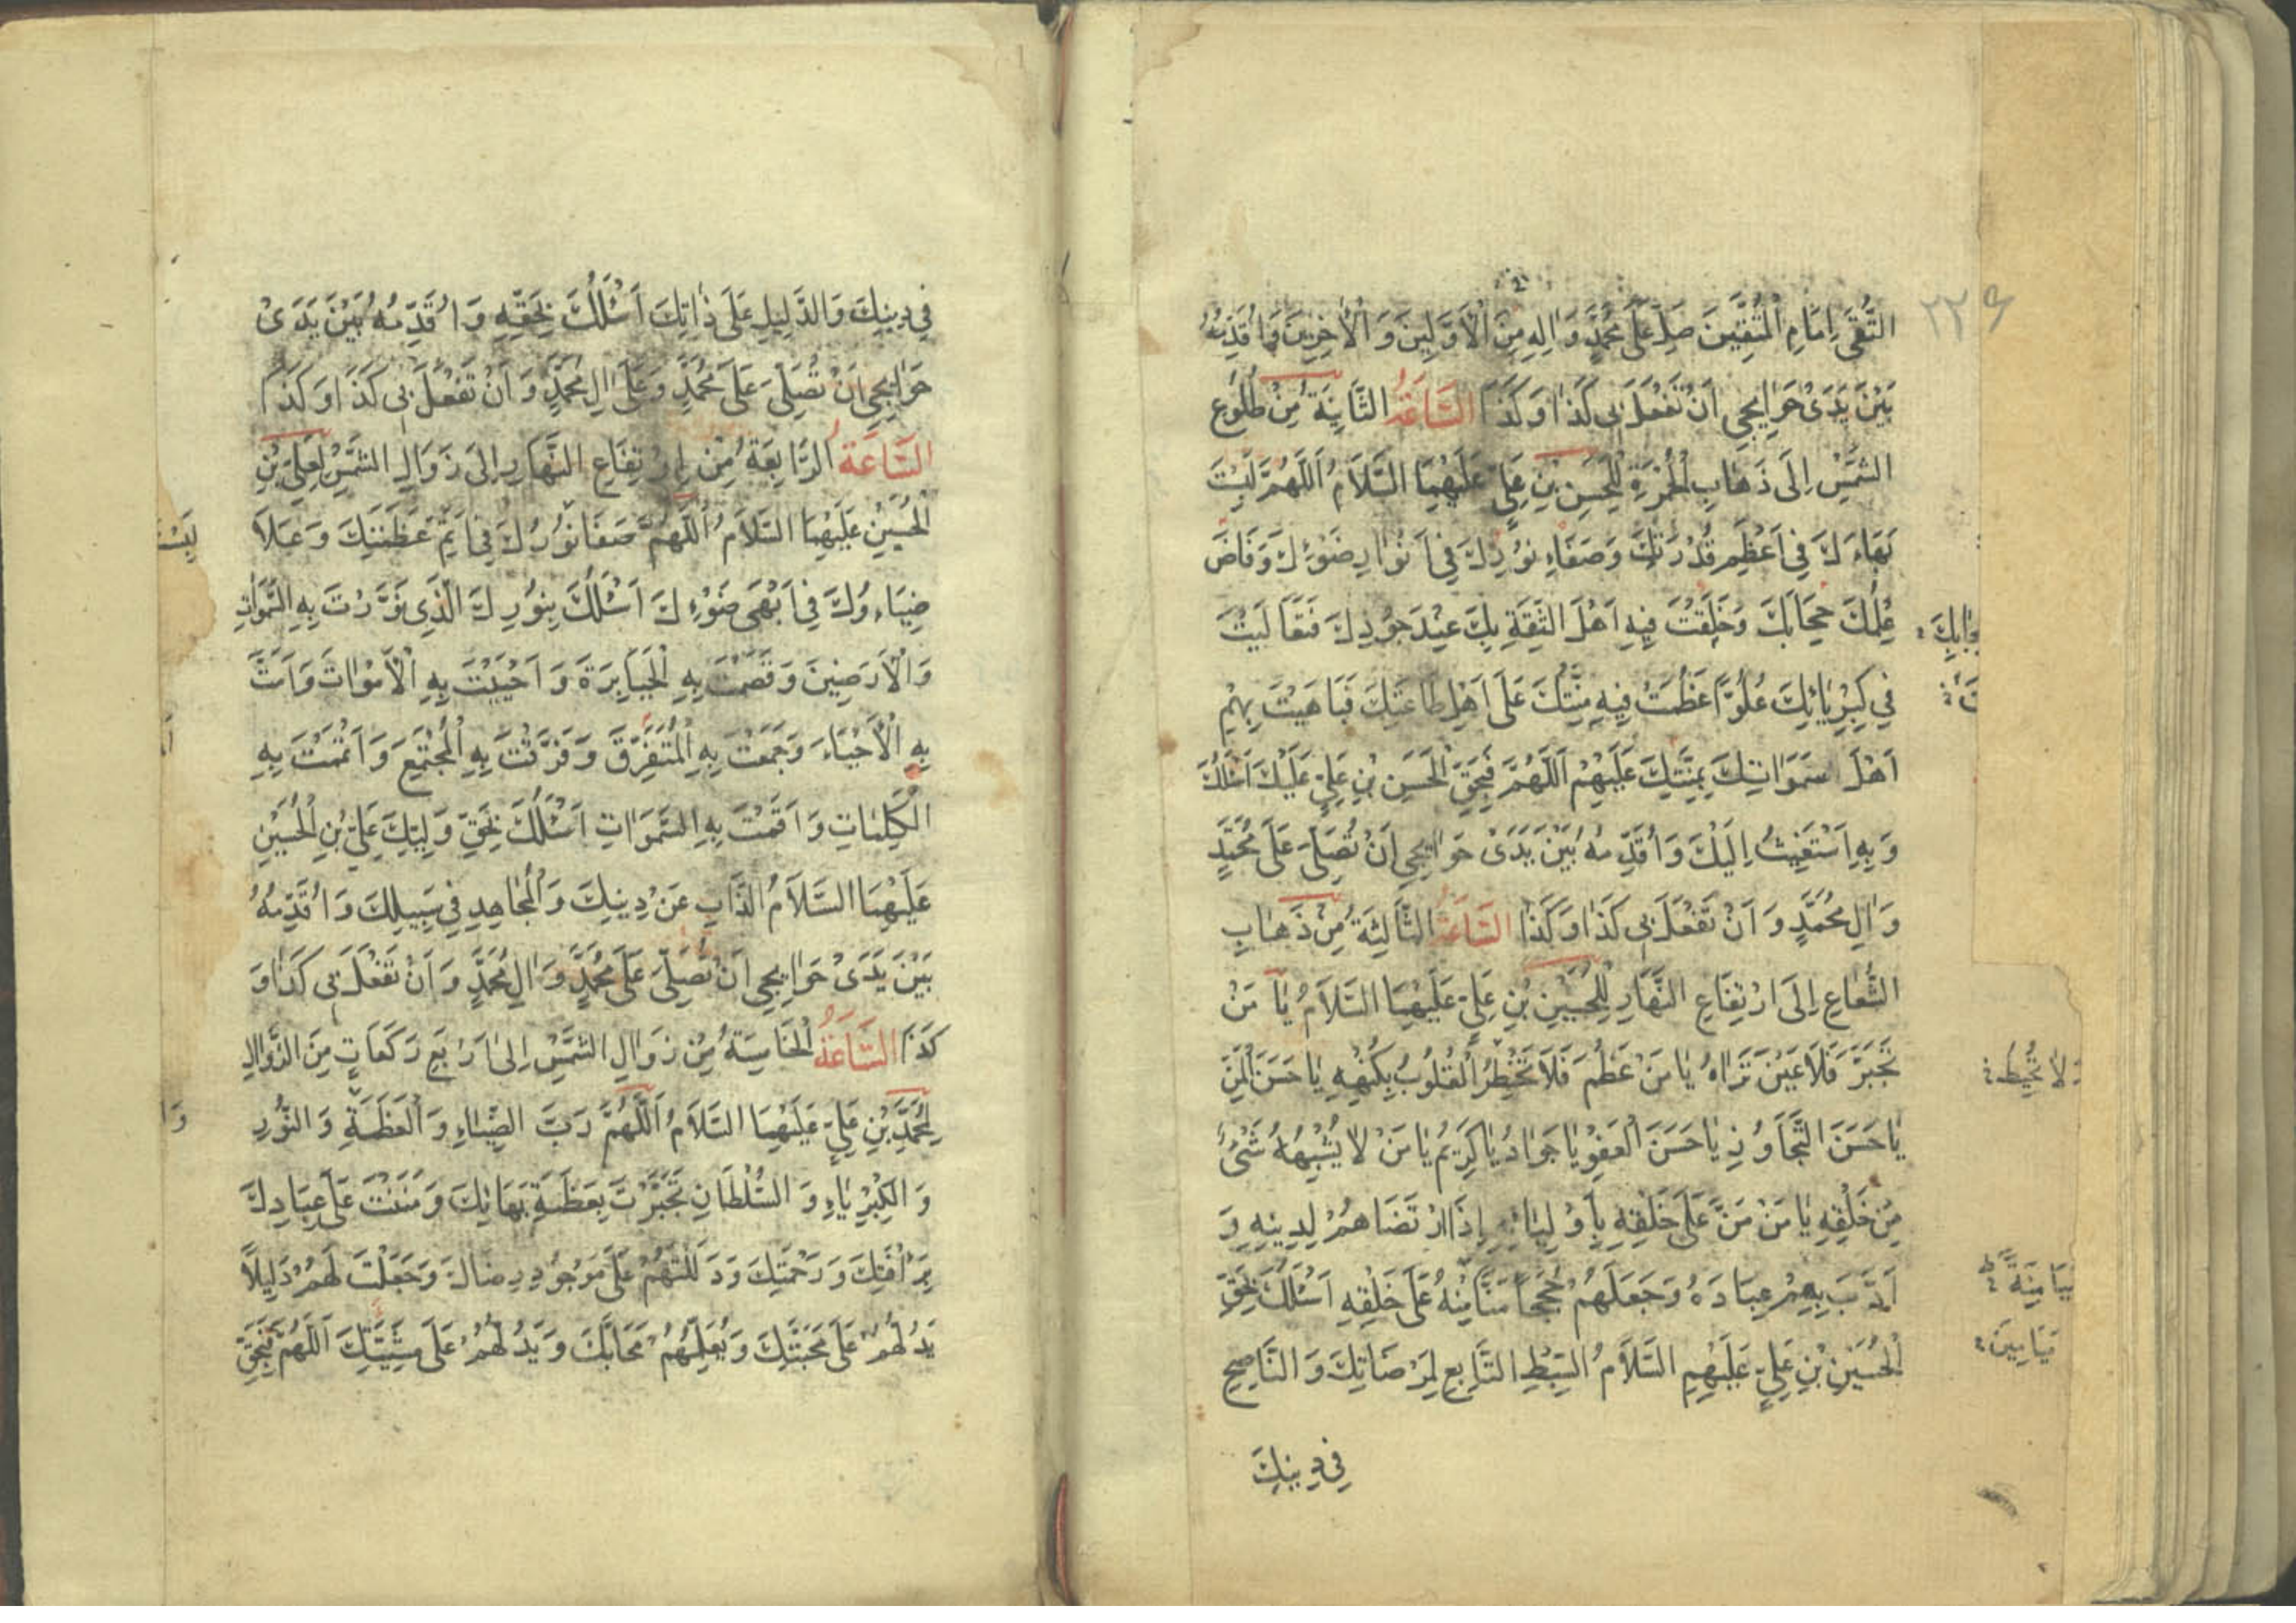 ٢٢٩
التُّقَى اِمَامِ الْمُتَّقِينَ صَلِّ عَلَى مُحَمَّدٍ وَالِهِ مِنَ الْاَوَّلِينَ وَ الْاٰخِرِينَ وَاُقَدِّمُهُ
بَيْنَ يَدَىْ حَوٰائِجِى اَنْ تَفْعَلَ بِى كَذٰا وَ كَذٰا السَّاعَةُ الثَّانِيَةُ مِنْ طُلُوعِ
الشَّمْسِ اِلَى ذَهٰابِ الْحُمْرَةِ لِلْحَسَنِ بْنِ عَلِيٍّ عَلَيْهِمَا السَّلَامُ اَللّٰهُمَّ لَبِسْتَ
بَهَاءَكَ فِي اَعْظَمِ قُدْرَتِكَ وَ صَفَاءِ نُورِكَ فِي اَنْوَارِ ضَوْءِكَ وَ فَاضَ
عِلْمُكَ حِجَابَكَ وَ خَلَقْتَ فِيهِ اَهْلَ الثِّقَةِ بِكَ عِنْدَ جُودِكَ فَتَعَالَيْتَ
فِي كِبْرِيٰائِكَ عُلُوّاً عَظُمَتْ فِيهِ مِنَّتُكَ عَلَى اَهْلِ طَاعَتِكَ فَبَاهَيْتَ بِهِمْ
اَهْلَ سَمَوٰاتِكَ بِمِنَّتِكَ عَلَيْهِمْ اَللّٰهُمَّ فَبِحَقِّ الْحَسَنِ بْنِ عَلِيٍّ عَلَيْكَ اَسْئَلُكَ
وَ بِهِ اَسْتَغِيثُ اِلَيْكَ وَ اُقَدِّمُهُ بَيْنَ يَدَىْ حَوٰائِجِى اَنْ تُصَلِّىَ عَلَى مُحَمَّدٍ
وَ اٰلِ مُحَمَّدٍ وَ اَنْ تَفْعَلَ بِى كَذٰا وَ كَذٰا السَّاعَةُ الثَّالِثَةُ مِنْ ذَهٰابِ
الشُّعٰاعِ اِلَى ارْتِفَاعِ النَّهَارِ لِلْحُسَيْنِ بْنِ عَلِيٍّ عَلَيْهِمَا السَّلَامُ يٰا مَنْ
تَجَبَّرَ فَلَا عَيْنَ تَرٰاهُ يٰا مَنْ عَظُمَ فَلَا تَخْطُرُ الْقُلُوبُ بِكُنْهِهِ يٰا حَسَنَ الْمَنِّ
يٰا حَسَنَ التَّجَاوُزِ يٰا حَسَنَ الْعَفْوِ يٰا جَوَادُ يٰا كَرِيمُ يٰا مَنْ لٰا يُشْبِهُهُ شَىْءٌ
مِنْ خَلْقِهِ يٰا مَنْ مَنَّ عَلَى خَلْقِهِ بِاَوْلِيَائِهِ اِذَا ارْتَضَاهُمْ لِدِينِهِ وَ
اَدَّبَ بِهِمْ عِبَادَهُ وَ جَعَلَهُمْ حُجَجاً مَنّاً مِنْهُ عَلَى خَلْقِهِ اَسْئَلُكَ بِحَقِّ
الْحُسَيْنِ بْنِ عَلِيٍّ عَلَيْهِمِ السَّلَامُ السِّبْطِ التَّابِعِ لِمَرْضَاتِكَ وَ النَّاصِحِ
فِى دِينِكَ
وَلٰا تُحِيطُ
فِى دِينِكَ وَ الدَّلِيلِ عَلَى ذٰاتِكَ اَسْئَلُكَ بِحَقِّهِ وَ اُقَدِّمُهُ بَيْنَ يَدَىْ
حَوٰائِجِى اَنْ تُصَلِّىَ عَلَى مُحَمَّدٍ وَ عَلَى اٰلِ مُحَمَّدٍ وَ اَنْ تَفْعَلَ بِى كَذٰا وَ كَذٰا
السَّاعَةُ الرَّابِعَةُ مِنْ اِرْتِفَاعِ النَّهَارِ اِلَى زَوَالِ الشَّمْسِ لِعَلِىِّ بْنِ
الْحُسَيْنِ عَلَيْهِمَا السَّلَامُ اَللّٰهُمَّ صَفَا نُورُكَ فِى اَتَمِّ عَظَمَتِكَ وَ عَلَا
ضِيَاءُكَ فِى اَبْهَى ضَوْءِكَ اَسْئَلُكَ بِنُورِكَ الَّذِى نَوَّرْتَ بِهِ السَّمَوٰاتِ
وَ الْاَرَضِينَ وَ قَصَمْتَ بِهِ الْجَبَابِرَةَ وَ اَحْيَيْتَ بِهِ الْاَمْوٰاتَ وَ اَمَتَّ
بِهِ الْاَحْيَاءَ وَ جَمَعْتَ بِهِ الْمُتَفَرِّقَ وَ فَرَّقْتَ بِهِ الْمُجْتَمِعَ وَ اَتْمَمْتَ بِهِ
الْكَلِمٰاتِ وَ اَقَمْتَ بِهِ السَّمَوَاتِ اَسْئَلُكَ بِحَقِّ وَلِيِّكَ عَلِىِّ بْنِ الْحُسَيْنِ
عَلَيْهِمَا السَّلَامُ الذَّابِّ عَنْ دِينِكَ وَ الْمُجَاهِدِ فِى سَبِيلِكَ وَ اُقَدِّمُهُ
بَيْنَ يَدَىْ حَوٰائِجِى اَنْ تُصَلِّىَ عَلَى مُحَمَّدٍ وَ اٰلِ مُحَمَّدٍ وَ اَنْ تَفْعَلَ بِى كَذٰا وَ
كَذٰا السَّاعَةُ الْخَامِسَةُ مِنْ زَوٰالِ الشَّمْسِ اِلٰى اَرْبَعِ رَكَعَاتٍ مِنَ الزَّوٰالِ
لِمُحَمَّدِ بْنِ عَلِىٍّ عَلَيْهِمَا السَّلَامُ اَللّٰهُمَّ رَبَّ الضِّيَاءِ وَ الْعَظَمَةِ وَ النُّورِ
وَ الْكِبْرِيٰاءِ وَ السُّلْطَانِ تَجَبَّرْتَ بِعَظَمَةِ بَهَائِكَ وَ مَنَنْتَ عَلَى عِبَادِكَ
بِرَأْفَتِكَ وَ رَحْمَتِكَ وَ دَلَلْتَهُمْ عَلَى مَوْجُودِ رِضَاكَ وَ جَعَلْتَ لَهُمْ دَلِيلًا
يَدُلُّهُمْ عَلَى مَحَبَّتِكَ وَ يُعَلِّمُهُمْ مَحَابَّكَ وَ يَدُلُّهُمْ عَلَى مَشِيَّتِكَ اَللّٰهُمَّ فَبِحَقِّ